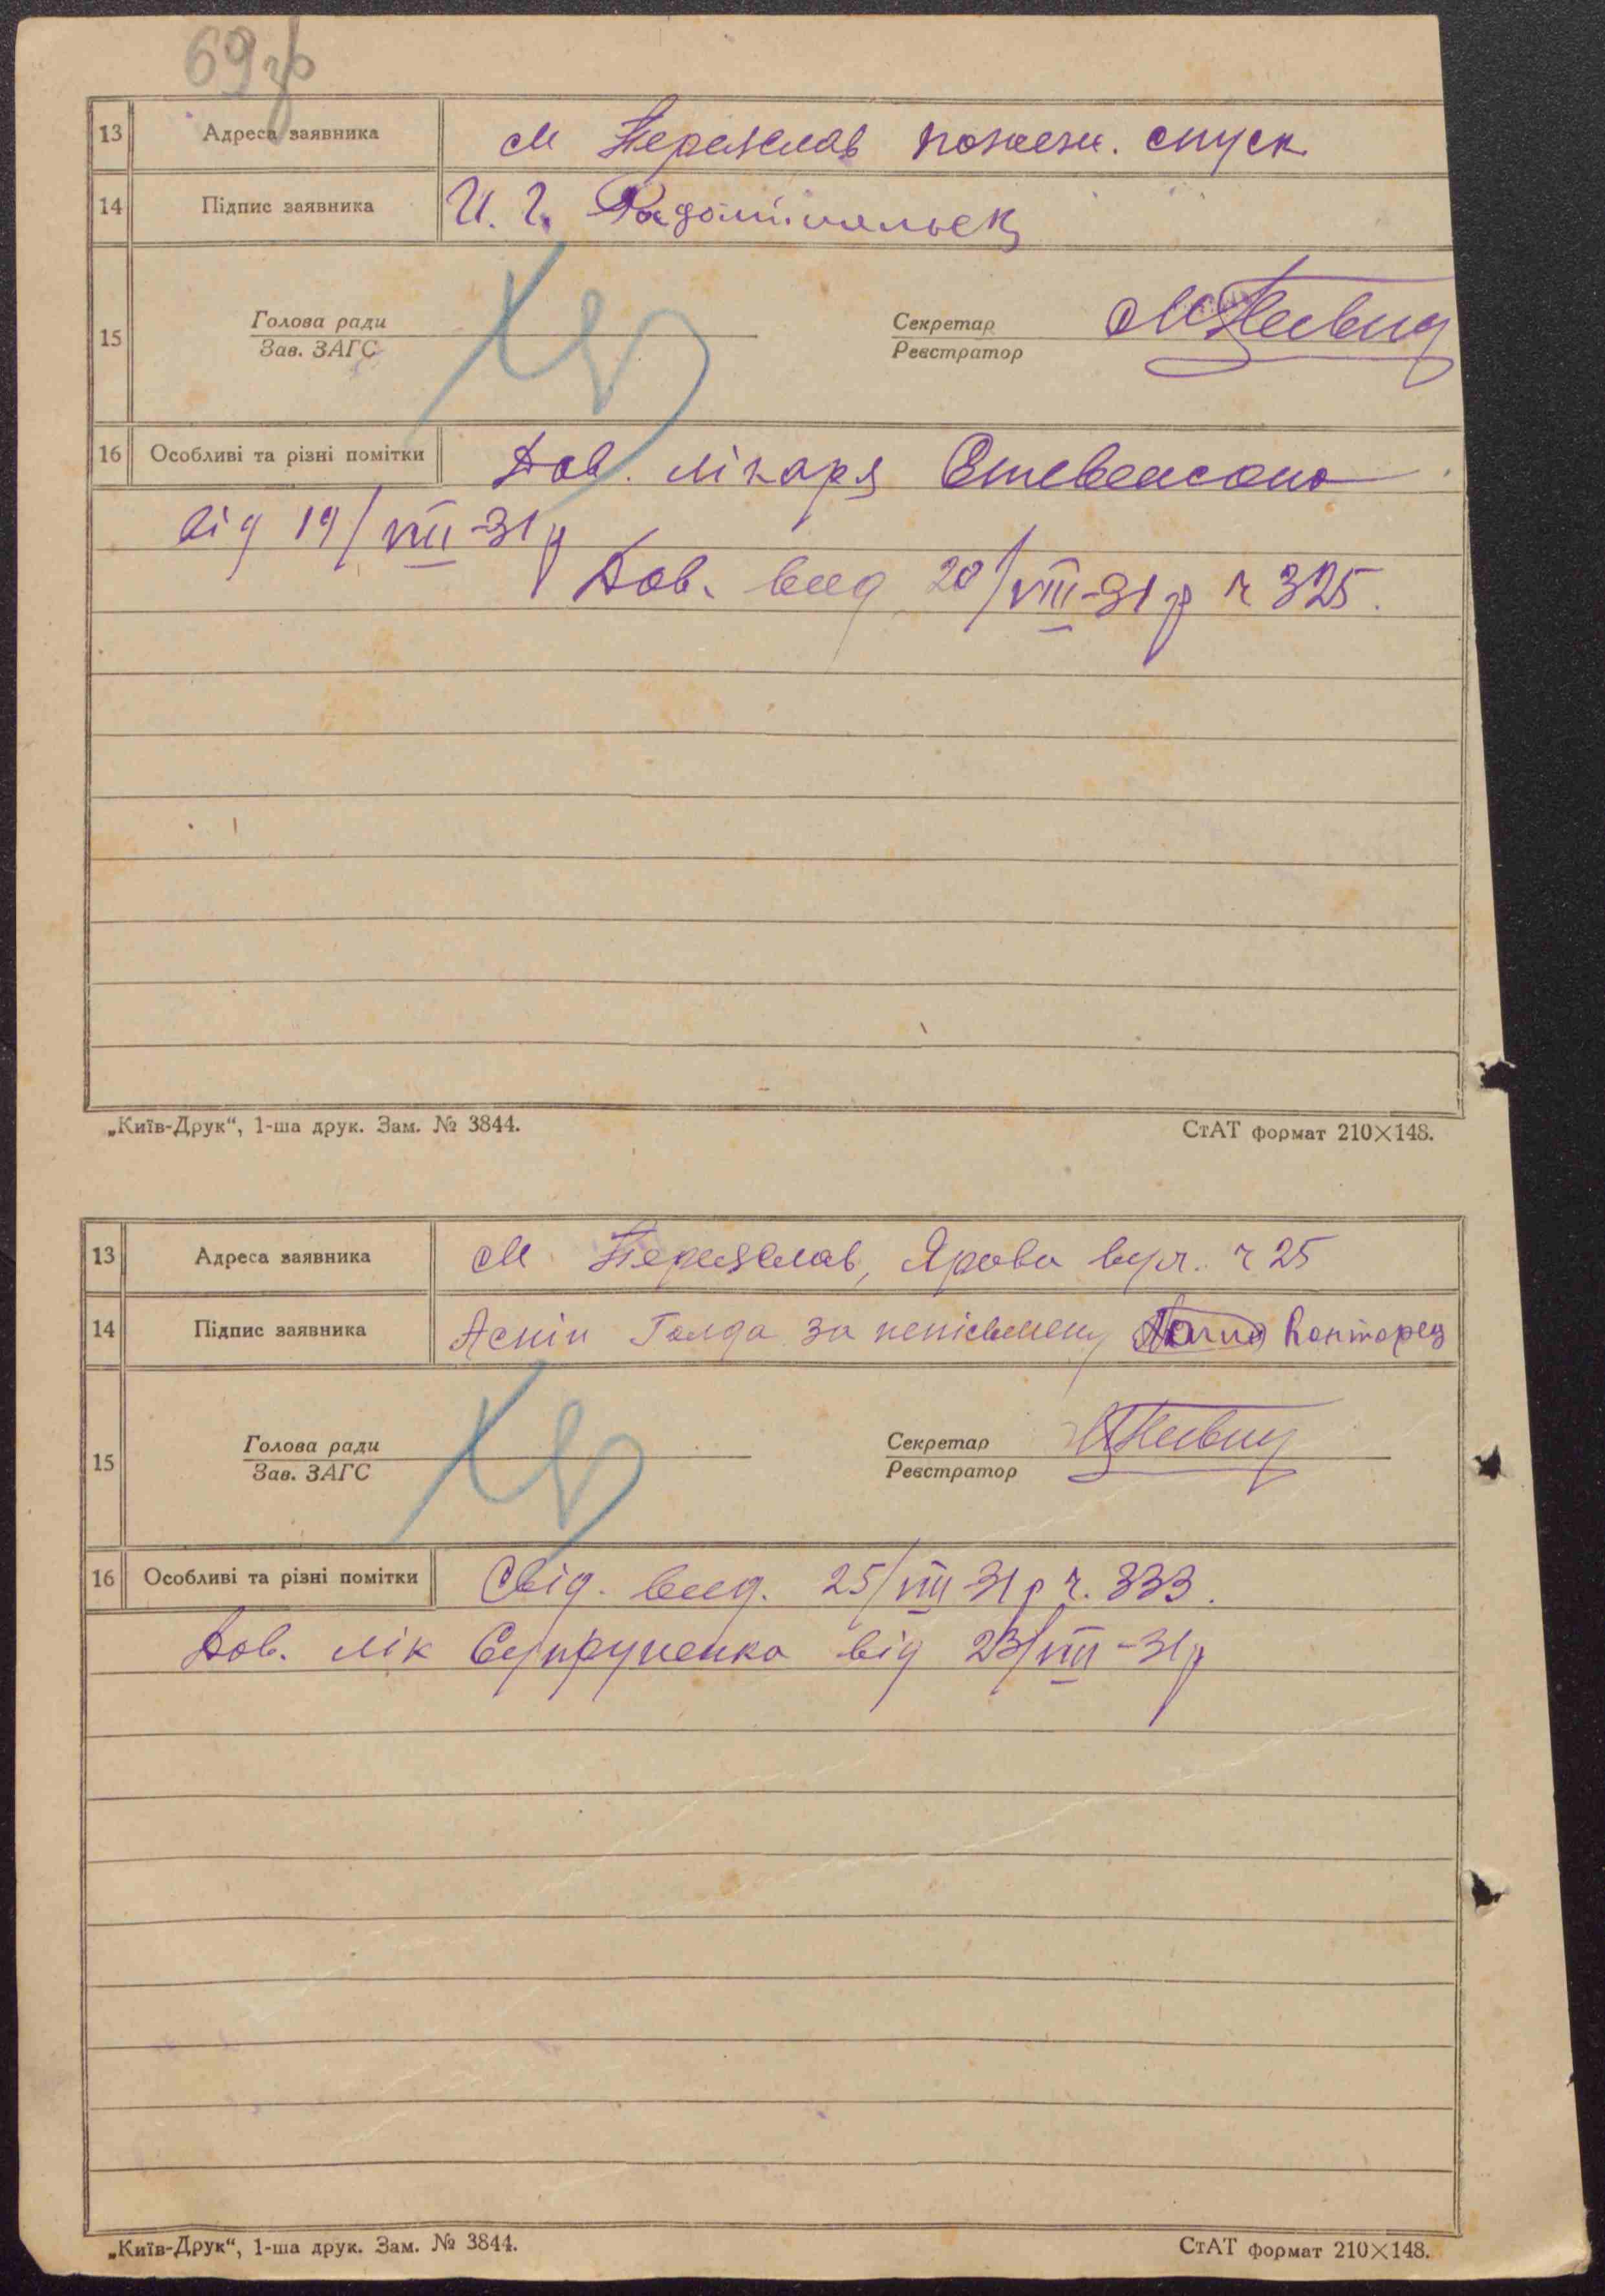 69зв
13 Адреса заявника м Переяслав пожежн. спуск
14 Підпис заявника И. Г.
15 Голова ради
Зав. ЗАГС
Секретар
Реєстратор
16 Особливі та різні помітки Дов. лікаря
від 19/VIII-31р
Дов. вид 20/VIII-31р ч 325.
„Київ-Друк“, 1-ша друк. Зам. № 3844. СтАТ формат 210×148.
13 Адреса заявника м Переяслав, Ярова вул. ч 25
14 Підпис заявника Аснін Голда за неписьменну Конторец
15 Голова ради
Зав. ЗАГС
Секретар
Реєстратор
16 Особливі та різні помітки Свід. вид. 25/VIII 31р ч. 333.
Дов. лік Супруненка від 23/VIII-31р
„Київ-Друк“, 1-ша друк. Зам. № 3844. СтАТ формат 210×148.